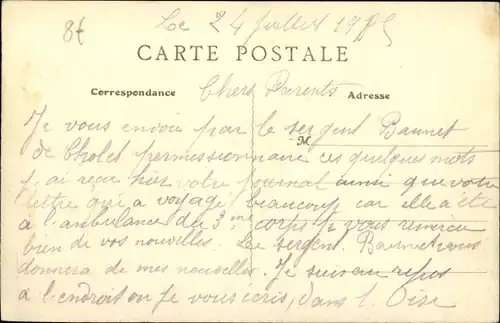 8€
Le 24 Juillet 1915
CARTE POSTALE
Correspondance Chers Parents Adresse
Je vous envoie par le sergent Baunet
M
de Cholet permissionnaire ces quelques mots
j'ai reçu hier votre journal ainsi que votre
lettre qui a voyagé beaucoup car elle a été
a l'ambulance du 3me corps je vous remercie
bien de vos nouvelles. Le sergent Baunet vous
donnera de mes nouvelles. Je suis au repos
a l'endroit ou je vous écris, dans l'Oise